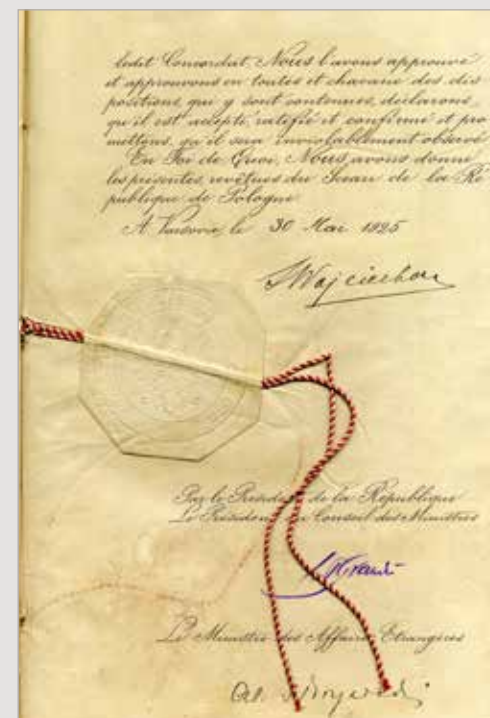 ledit Concordat, Nous l'avons approuvé
et approuvons en toutes et chacune des dis
positions, qui y sont contenues, déclarons,
qu'il est accepté, ratifié et confirmé et pro
mettons, qu'il sera inviolablement observé
En Foi de Quoi, Nous, avons donné
les présentes, revêtues du Sceau de la Ré
publique de Pologne
A Varsovie, le 30 Mai 1925
SWojciechow
Par le Président de la République
Le Président du Conseil des Ministres
Le Ministre des Affaires Etrangères